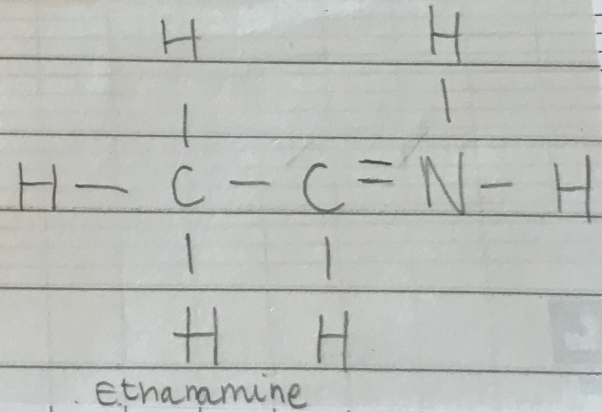 H H
| |
H — C — C = N — H
| |
H H
Ethanamine